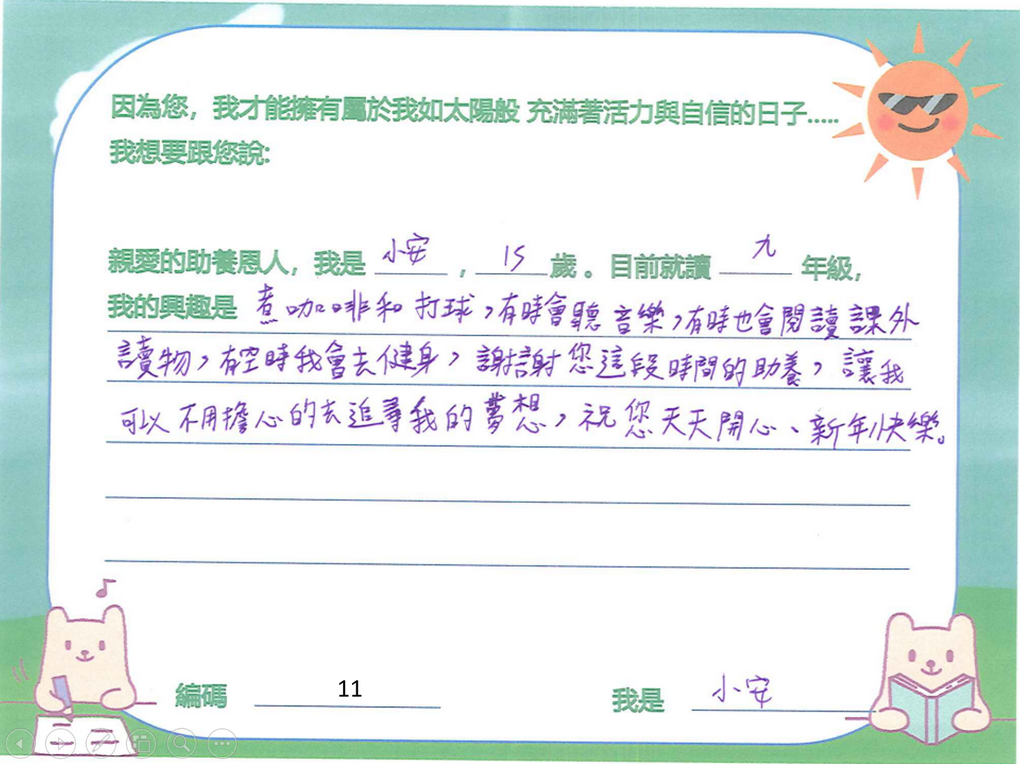 因為您，我才能擁有屬於我如太陽般 充滿著活力與自信的日子.....
我想要跟您說:
親愛的助養恩人，我是 小安 ，15 歲。目前就讀 九 年級，
我的興趣是 煮咖啡和打球，有時會聽音樂，有時也會閱讀課外
讀物，有空時我會去健身，謝謝您這段時間的助養，讓我
可以不用擔心的去追尋我的夢想，祝您天天開心、新年快樂。
編碼 11 我是 小安